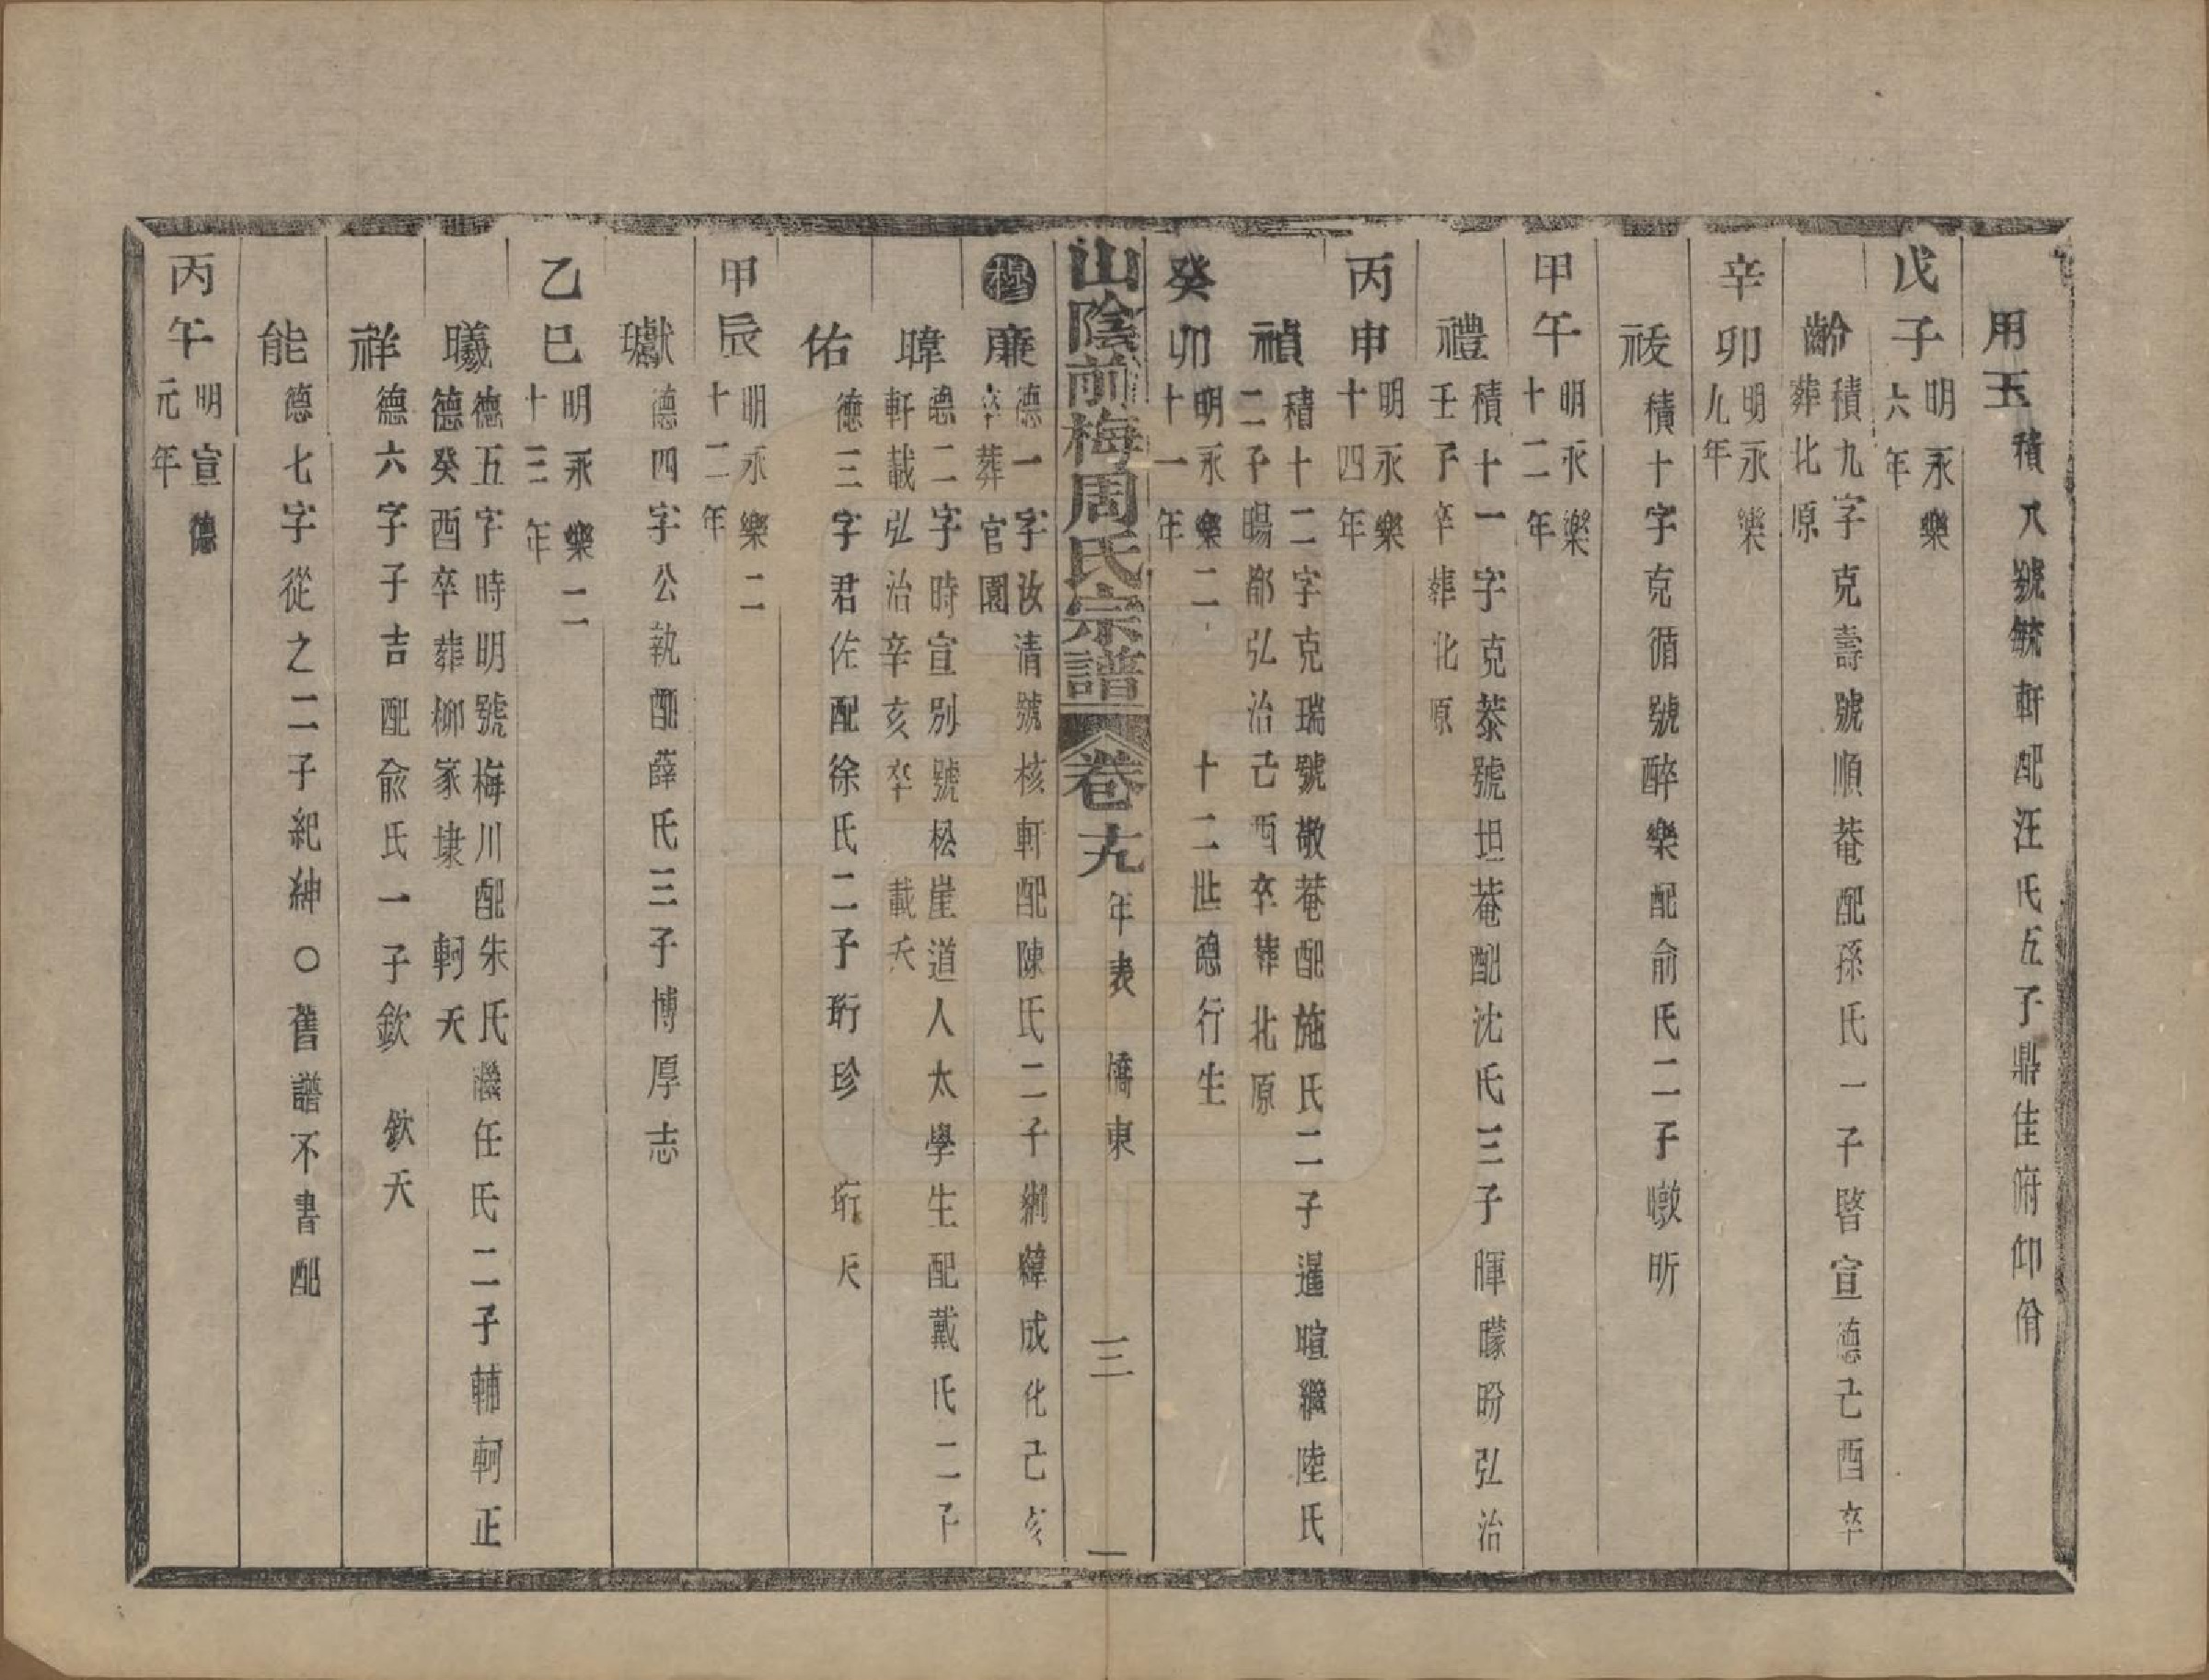 用玉 積八號毓軒配汪氏五子鼎佳府仰脩
戊子 明永樂六年
齡 積九字克壽號順菴配孫氏一子晵宣德己酉卒葬北原
辛卯 明永樂九年
祾 積十字克循號醉樂配俞氏二子暾昕
甲午 明永樂十二年
禮 積十一字克恭號坦菴配沈氏三子暉曚昐弘治壬子卒葬北原
丙申 明永樂十四年
禎 積十二字克瑞號敬菴配施氏二子暹暄繼陸氏二子暘郁弘治己酉卒葬北原
癸卯 明永樂二十一年 十二世德行生
山陰前梅周氏宗譜 卷十九 年表 橋東 三
穆 廉 德一字汝清號核軒配陳氏二子綱緯成化己亥卒葬官園
暐 德二字時宣別號松崖道人太學生配戴氏二子軒載弘治辛亥卒 載夭
佑 德三字君佐配徐氏二子珩珍 珩夭
甲辰 明永樂二十二年
瓛 德四字公執配薛氏三子博厚志
乙巳 明永樂二十三年
曦 德五字時明號梅川配朱氏繼任氏二子輔軻正德癸酉卒葬柳家埭 軻夭
祥 德六字子吉配俞氏一子欽 欽夭
能 德七字從之二子紀紳〇舊譜不書配
丙午 明宣德元年